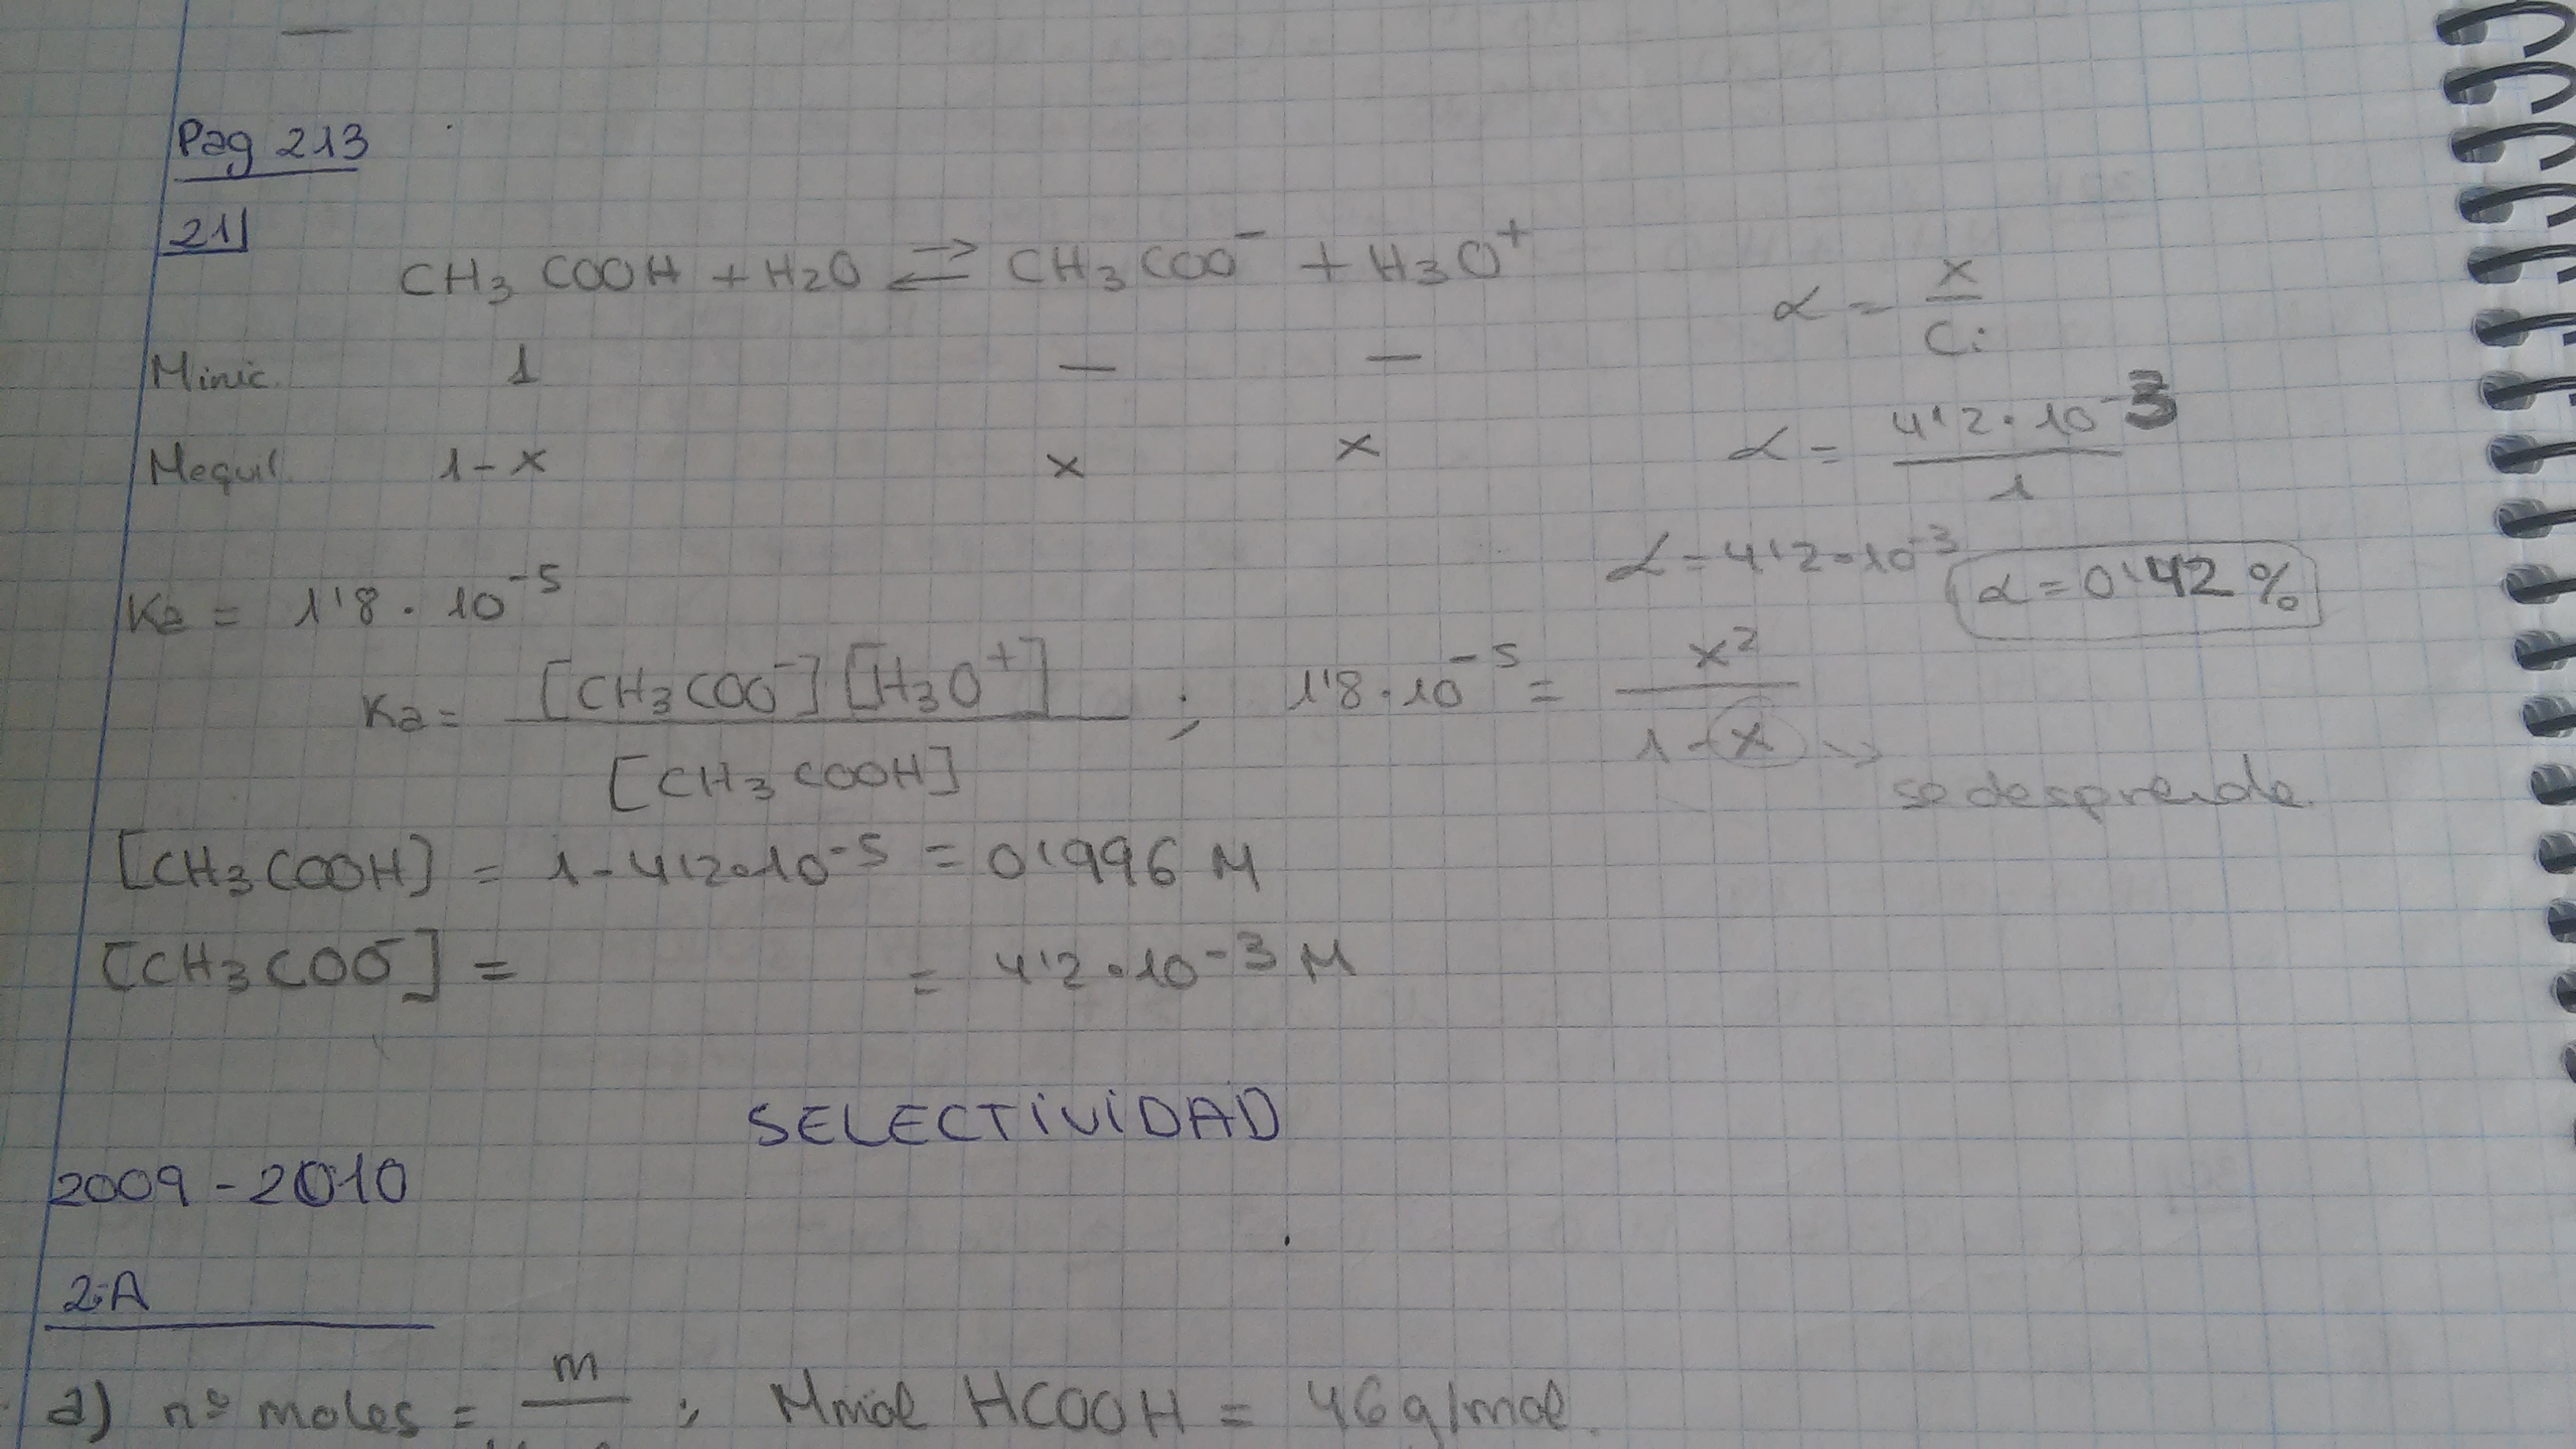 Pag 213
21|
CH3 COOH + H2O ⇌ CH3COO⁻ + H3O⁺
α = x / Ci
Minic. 1 — —
α = 4'2·10⁻³ / 1
Mequil. 1-x x x
α = 4'2·10⁻³ α = 0'42 %
Ka = 1'8 · 10⁻⁵
Ka = [CH3COO⁻] [H3O⁺] / [CH3COOH] ; 1'8·10⁻⁵ = x² / 1-x →
se desprende.
[CH3COOH] = 1-4'2·10⁻⁵ = 0'996 M
[CH3COO⁻] = = 4'2·10⁻³ M
SELECTIVIDAD
2009-2010
2-A
a) nº moles = m ; Mmol HCOOH = 46g/mol.